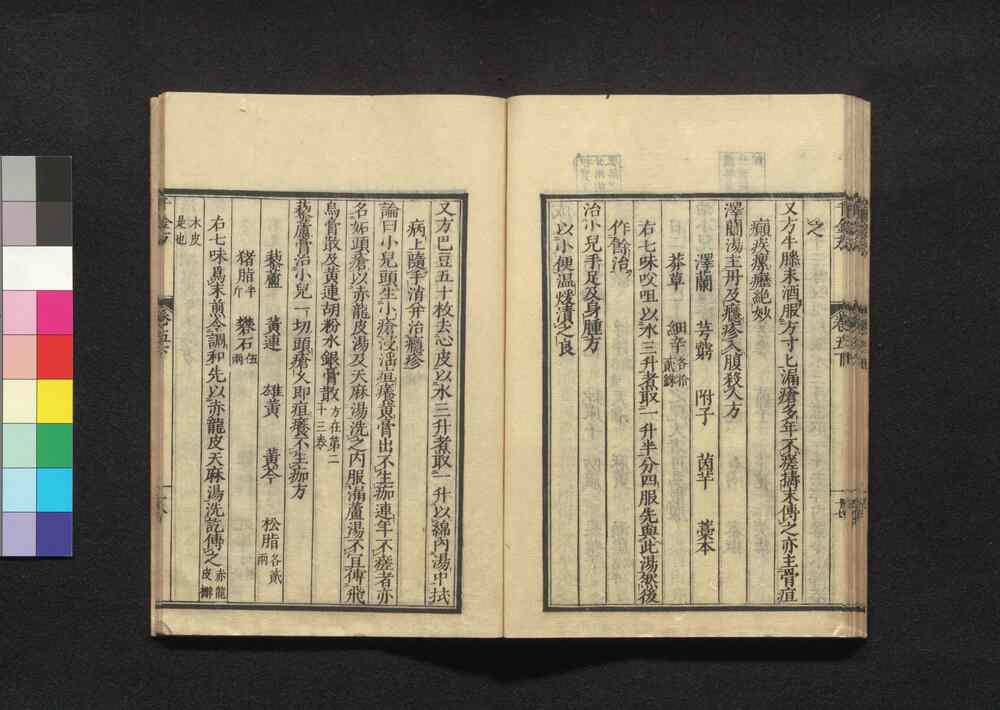 之
又方牛膝末酒服方寸匕漏瘡多年不瘥搗末傅之亦主骨疽
癲疾瘰癧絶妙
澤蘭湯主丹及癮疹入腹殺人方
澤蘭 芎藭 附子 茵芋 藁本
莽草 細辛各拾貳銖
右七味㕮咀以水三升煮取一升半分四服先與此湯然後
作餘治
治小兒手足及身腫方
以小便温煖漬之良
又方巴豆五十枚去心皮以水三升煮取一升以綿內湯中拭
病上隨手消并治癮疹
論曰小兒頭生小瘡浸淫疽癢黃膏出不生痂連年不瘥者亦
名妬頭瘡以赤龍皮湯及天麻湯洗之內服漏蘆湯外宜傅飛
烏膏散及黃連胡粉水銀膏散方在第二十三卷
藜蘆膏治小兒一切頭瘡久即疽癢不生痂方
藜蘆 黃連 雄黃 黃芩 松脂各貳兩
猪脂半斤 礬石伍兩
右七味爲末煎令調和先以赤龍皮天麻湯洗訖傅之赤龍皮槲
木皮是也